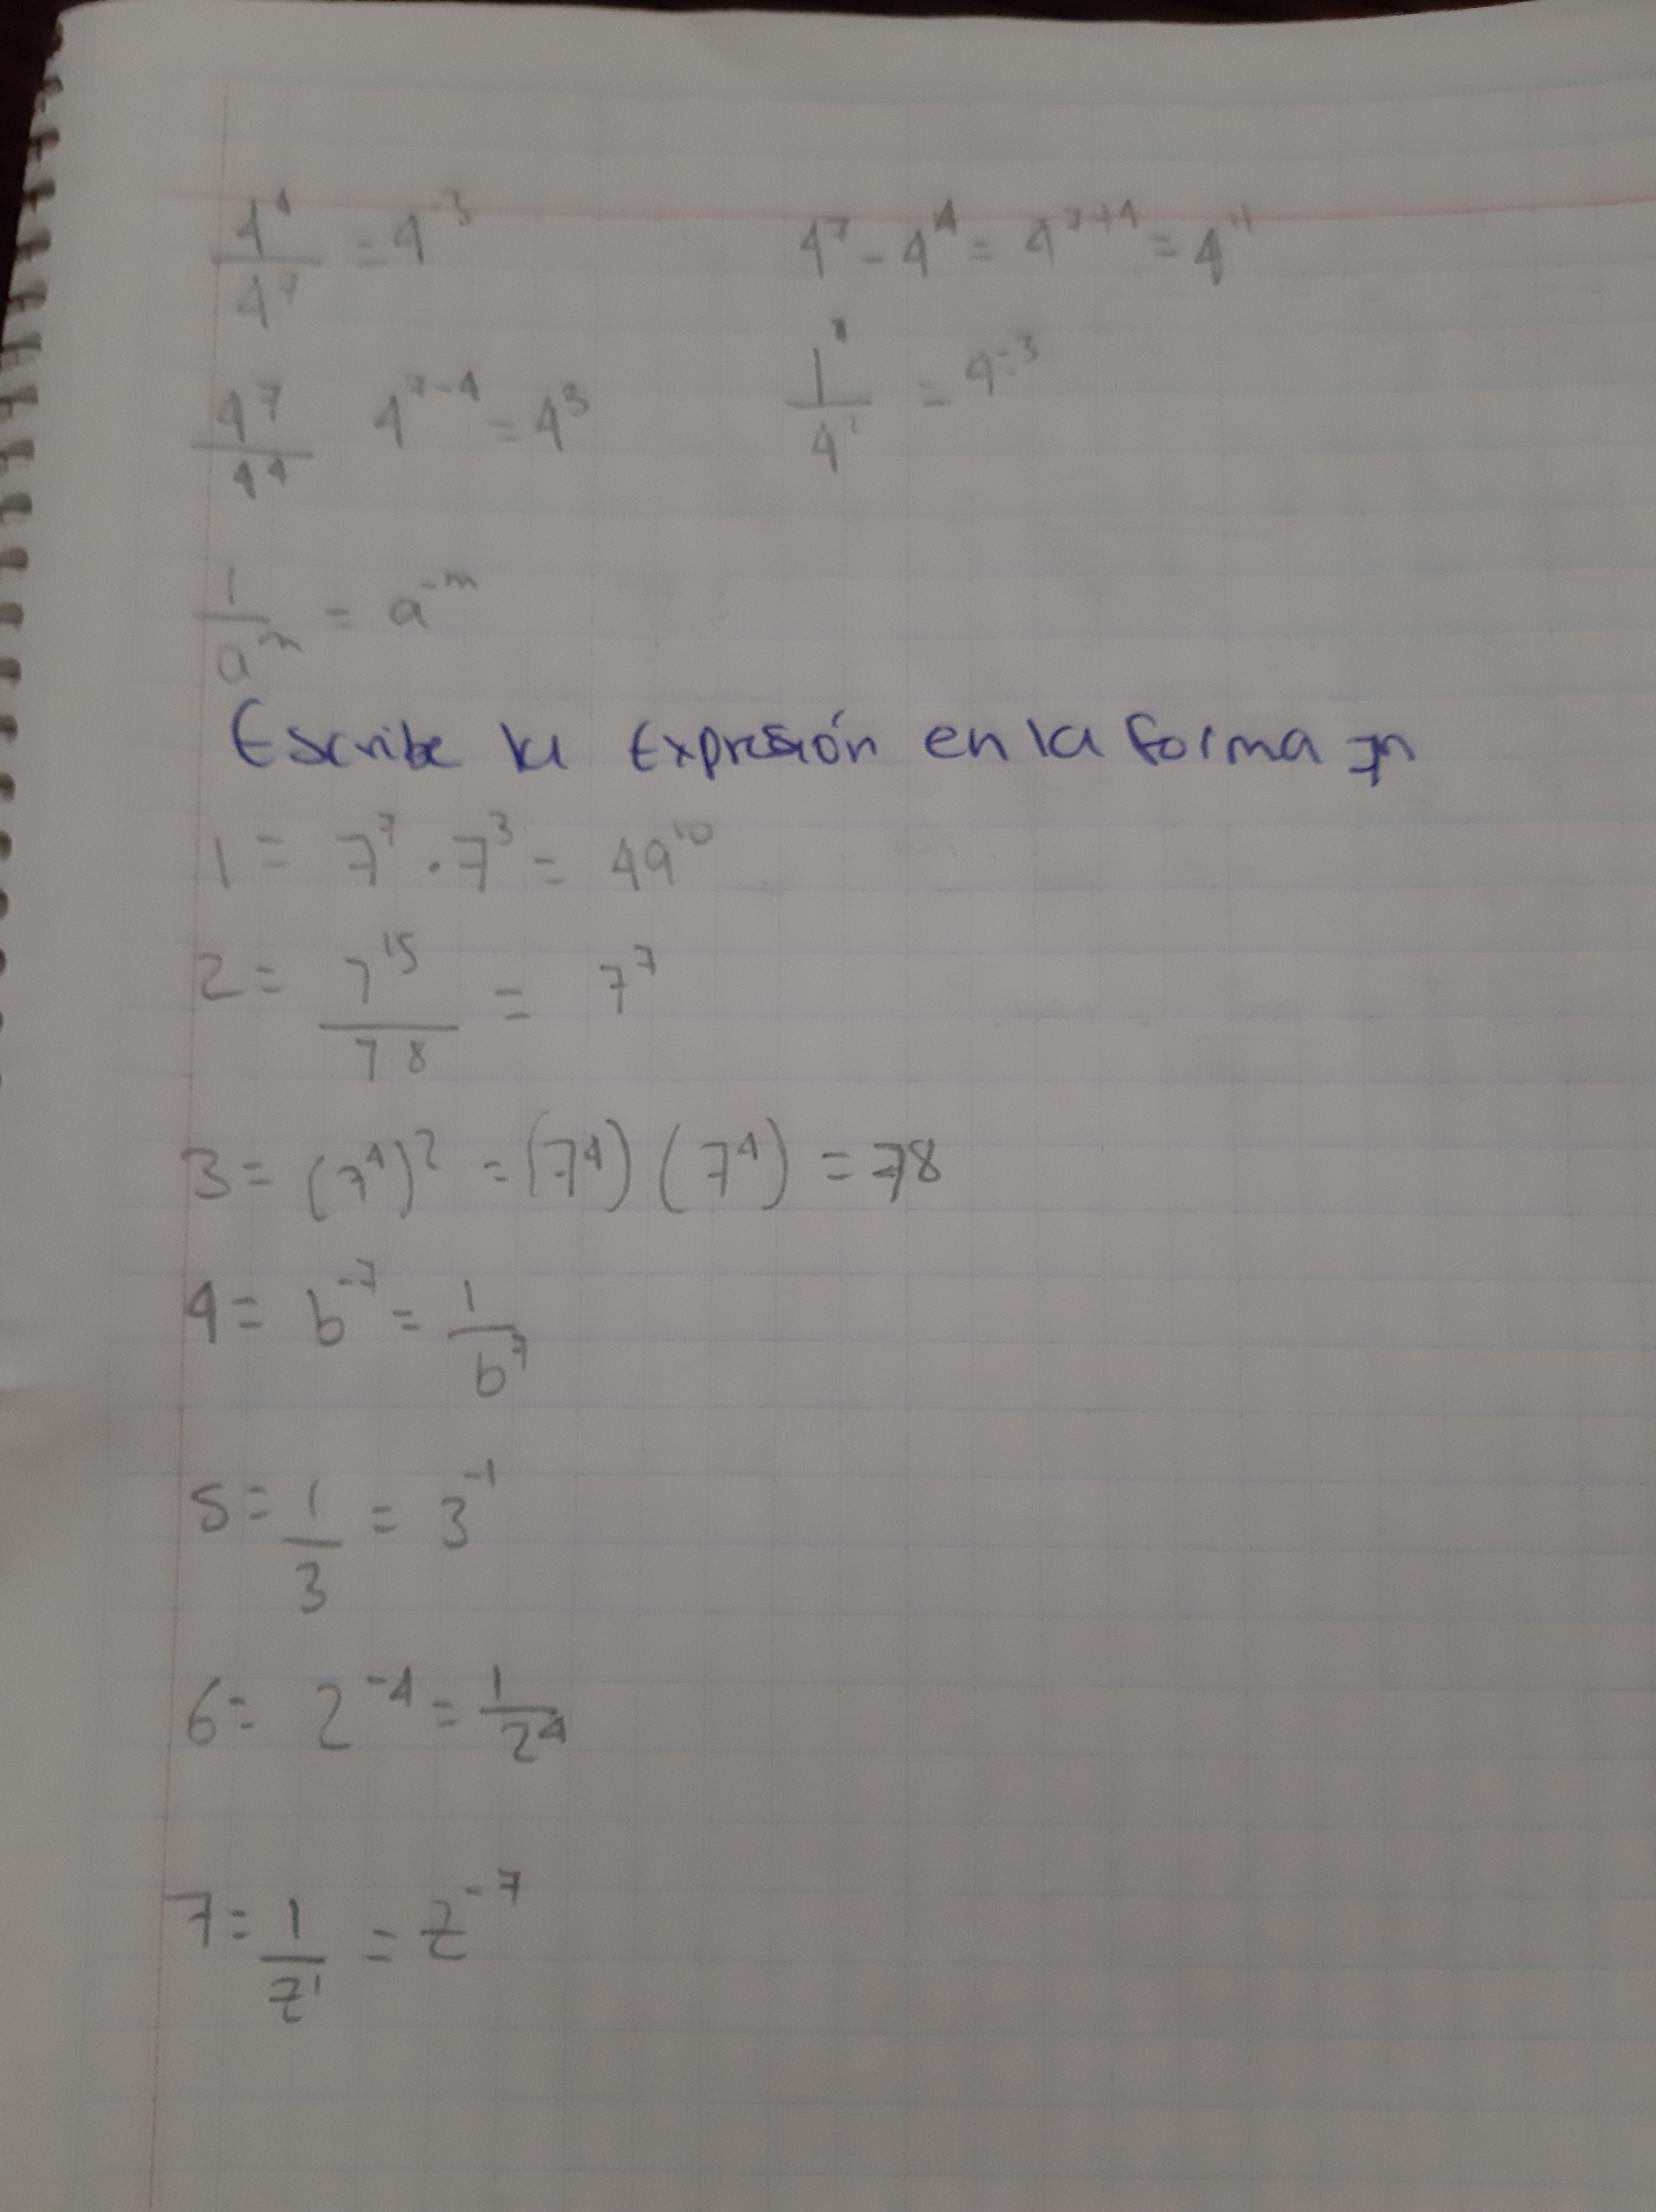 4⁴/4⁷ = 4⁻³
4⁷ - 4⁴ = 4⁷⁺⁴ = 4¹¹
4⁷/4⁴ 4⁷⁻⁴ = 4³
1/4² = 4⁻³
1/aᵐ = a⁻ᵐ
Escribe la Expresión en la forma 7n
1 = 7⁷ · 7³ = 49¹⁰
2 = 7¹⁵/7⁸ = 7⁷
3 = (7⁴)² = (7⁴) (7⁴) = 78
4 = b⁻⁷ = 1/b⁷
5 = 1/3 = 3⁻¹
6 = 2⁻⁴ = 1/2⁴
7 = 1/z¹ = z⁻⁷